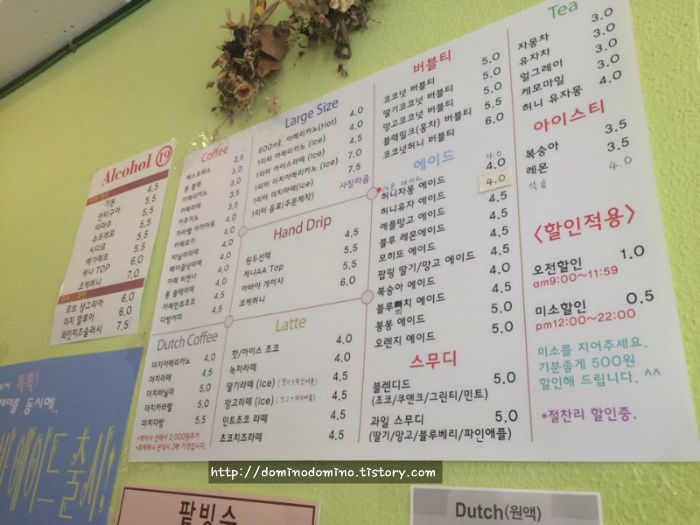 Alcohol 19
기본 4.5
5.5
5.5
5.5
시디요 5.5
메가헤르츠 5.5
케냐 TOP 6.0
코케허니 5.5
코코 샹그리아 6.0
더치 깔루아 6.0
와인치즈슬러시 7.5
Coffee
에스프레소 2.5
롱 블랙 3.0
아메리카노 3.0
카페라떼
카푸치노
카라멜 마끼아또
카페모카
바닐라라떼
헤이즐넛라떼
카페 비엔나
카페민트초코
다방커피
Dutch Coffee
더치아메리카노 4.0
더치라떼 4.5
더치바닐라 5.0
더치카라멜 5.0
더치다방 5.5
Large Size
600mL 아메리카노(Hot) 4.0
1리터 아메리카노 (Ice) 4.0
1리터 아이스라떼 (Ice) 5.0
1리터 더치아메리카노 (Ice) 6.0
1리터 더치라떼(Ice) 7.0
1리터 음료(주문제작) 사장마음
Hand Drip
원두선택 5.0
케냐AA Top 5.5
파나마 게이샤 5.5
코케허니 6.0
Latte
핫/아이스 초코 4.0
녹차라떼 4.0
딸기라떼 (Ice) 4.5
망고라떼 (Ice) 4.5
민트초코 라떼 4.5
초코치즈라떼 4.5
버블티
코코넛 버블티 5.0
딸기코코넛 버블티 5.0
망고코코넛 버블티 5.0
블랙밀크(홍차) 버블티 5.5
코코넛허니 버블티 6.0
에이드
허니자몽 에이드 4.0
허니유자 에이드 4.0
애플망고 에이드 4.5
블루 레몬에이드 4.5
모히또 에이드 4.5
팝핑 딸기/망고 에이드 4.5
복숭아 에이드 4.5
블루베리치 에이드 4.5
봉봉 에이드 4.5
오렌지 에이드 5.0
스무디
블렌디드 5.0
(초코/쿠앤크/그린티/민트)
과일 스무디 5.0
(딸기/망고/블루베리/파인애플)
Tea
자몽차 3.0
유자차 3.0
얼그레이 3.0
캐모마일 3.0
허니 유자몽 4.0
아이스티
복숭아 3.5
레몬 3.5
〈할인적용〉
오전할인 1.0
am9:00~11:59
미소할인 0.5
pm12:00~22:00
미소를 지어주세요.
기분좋게 500원
할인해 드립니다. ^^
*절찬리 할인중.
톡톡!
동시에.
에이드 출시!
http://dominodomino.tistory.com
팥빙수
Dutch(원액)